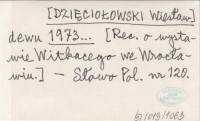 [DZIĘCIOŁOWSKI Wiesław]
dewu 1973... [Rec. o wysta-
wie Witkacego we Wrocła-
wiu.] – Słowo Pol. nr 120.